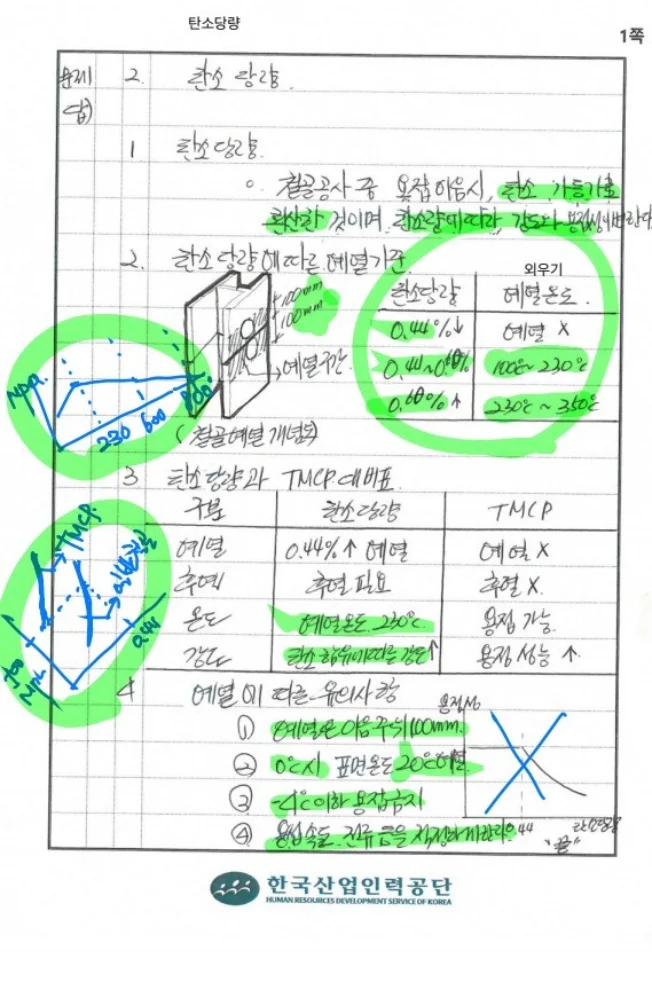 탄소당량
1쪽
문제 2. 탄소 당량.
답)
1 탄소당량.
○. 철골공사 중 용접이음시, 탄소 가등가로
환산한 것이며, 탄소량에 따라, 강도나 용접성이 변한다
2. 탄소 당량에 따른 예열기준.
외우기
탄소당량 예열온도.
0.44%↓ 예열 X
0.44~0.60% 100℃~230℃
0.60%↑ 230℃~350℃
100mm
100mm
예열구간.
MPa
230 600 800
(철골예열 개념도)
3 탄소당량과 TMCP 대비표.
구분 탄소당량 TMCP
예열 0.44%↑ 예열 예열 X
후열 후열 필요 후열 X.
온도 예열온도. 230℃. 용접 가능.
강도 탄소 함유에 따른 강도↑ 용접 성능 ↑.
TMCP
일반강
0.44
4 예열에 따른 유의사항
① 예열은 이음 주위 100mm.
② 0℃시 표면온도 20℃예열.
③ -4℃이하 용접금지
④ 용접속도. 전류 등을 적정하게관리
용접성
0.44 탄소당량
"끝"
한국산업인력공단
HUMAN RESOURCES DEVELOPMENT SERVICE OF KOREA